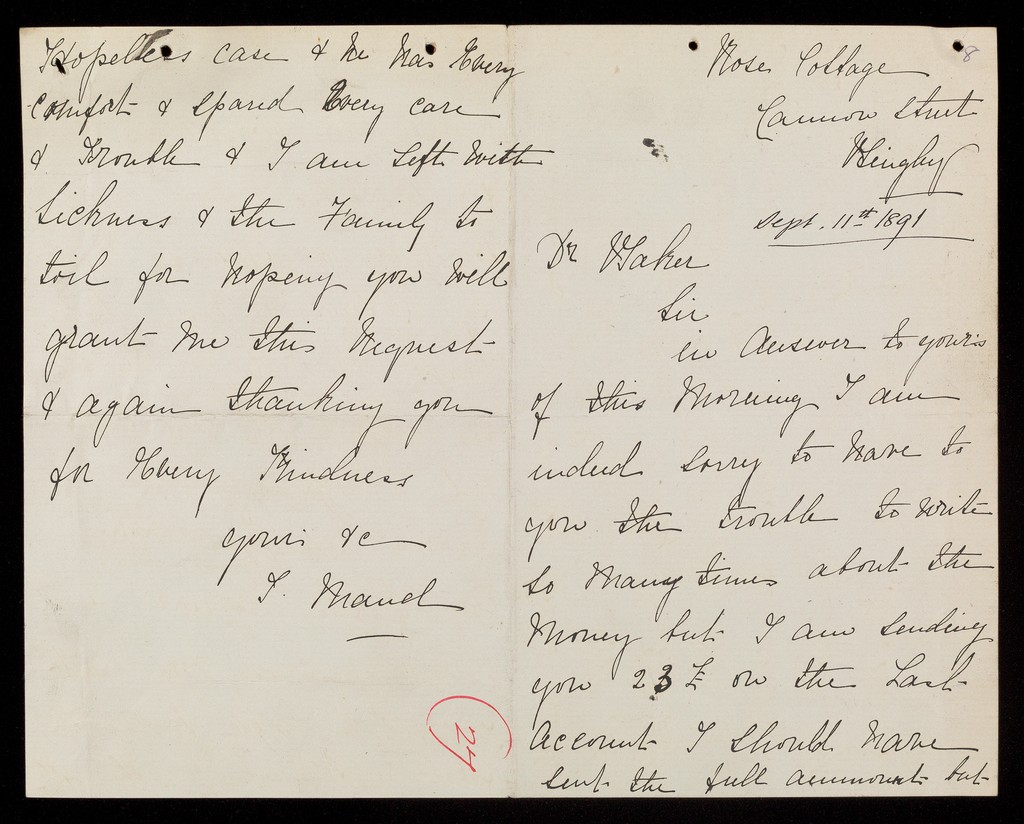 8
Rose Cottage
Cannon Street
Bingley
Sept. 11th 1891
Dr Baker
Sir
in Answer to yours
of this Morning I am
indeed sorry to Have to
you the trouble to write
so Many times about the
Money but I am sending
you 23 £ on the Last
Account I should Have
sent the full ammount but
Hopeless case & He Had Every
comfort & spared Every care
& Trouble & I am Left With
Sickness & the Family to
toil for Hopeing you Will
grant Me this Request
& again thanking you
for Every Kindness
yours &c
T. Maud